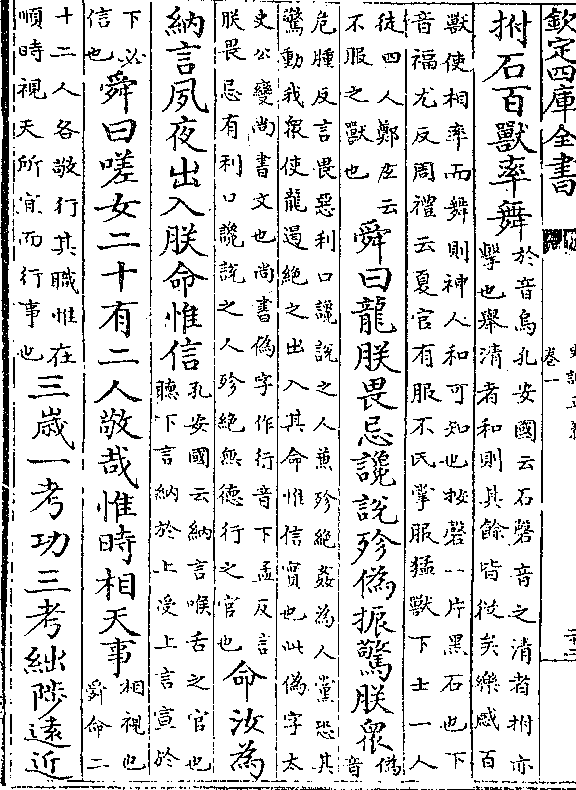 欽定四庫全書
卷一
拊石百獸率舞
於音烏孔安國云石磬音之清者拊亦
擊也舉清者和則其餘皆從矣樂感百
獸使相率而舞則神人和可知也按磬一片黑石也下
音福尤反周禮云夏官有服不氏掌服猛獸下士一人
徒四人鄭玄云
不服之獸也
舜曰龍朕畏忌讒說殄偽振驚朕衆
偽
音
危睡反言畏惡利口讒說之人兼殄絕姦為人黨恐其
驚動我衆使龍遏絕之出入其命惟信實也此偽字太
史公變尚書文也尚書偽字作行音下孟反言
朕畏忌有利口讒說之人殄絕無德行之官也
命汝為
納言夙夜出入朕命惟信
孔安國云納言喉舌之官也
聽下言納於上受上言宣於
下必
信也
舜曰嗟女二十有二人敬哉惟時相天事
相視也
舜命二
十二人各敬行其職惟在
順時視天所宜而行事也
三歳一考功三考絀陟遠近